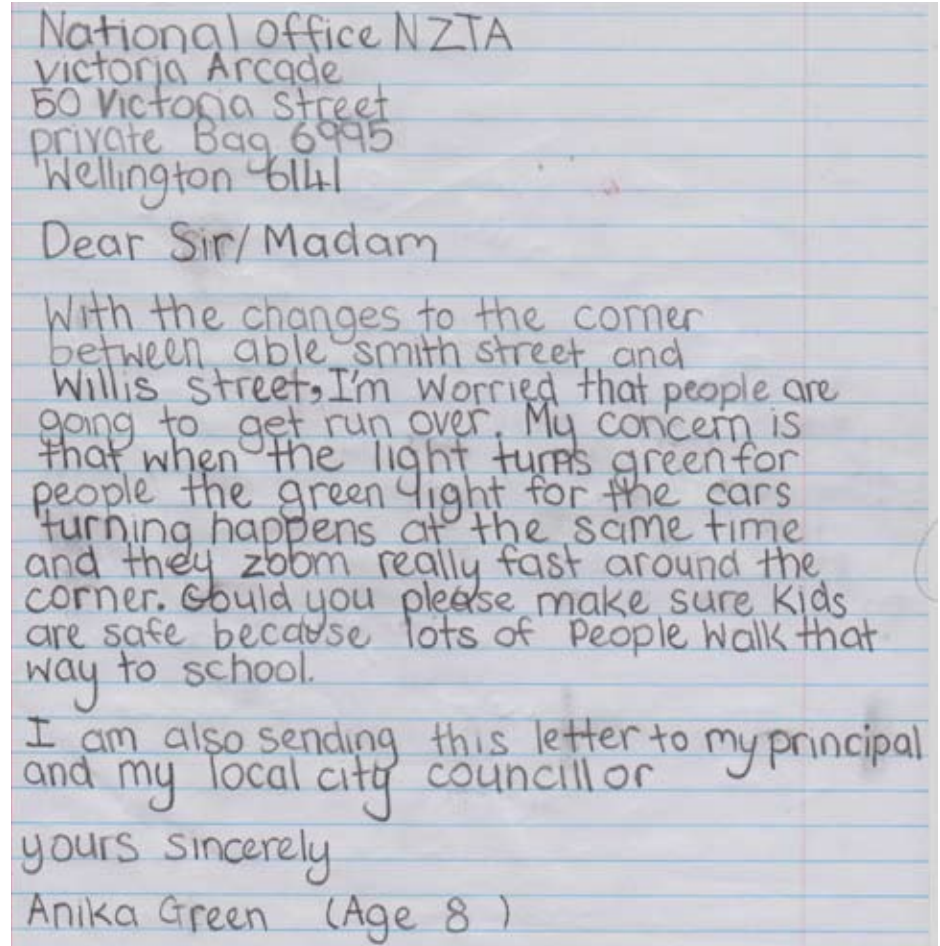 National office NZTA
victoria Arcade
50 Victoria Street
private Bag 6995
Wellington 6141
Dear Sir/Madam
With the changes to the corner
between able smith street and
Willis street, I'm worried that people are
going to get run over. My concern is
that when the light turns green for
people the green light for the cars
turning happens at the same time
and they zoom really fast around the
corner. Could you please make sure kids
are safe because lots of people walk that
way to school.
I am also sending this letter to my principal
and my local city councillor
yours sincerely
Anika Green (Age 8)